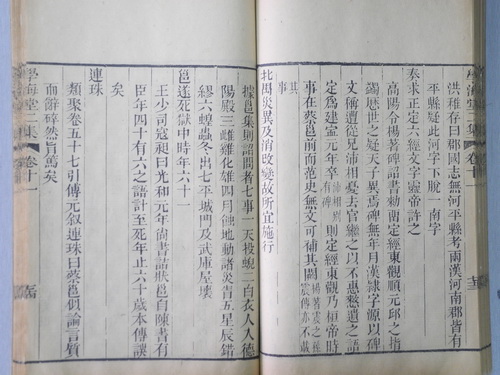 學海堂二集 卷十一
洪稚存曰郡國志無河平縣考兩漢河南郡皆有
平縣疑此河字下脫一南字
奏求正定六經文字靈帝許之
高陽令楊著碑詔書勅留定經東觀順元邱之指
蠲歷世之疑天子異焉碑無年月漢隸字源以碑
文稱遭從兄沛相憂去官鑒之以不惠慭遺之語
定為建寧元年卒沛相別有碑則定經東觀乃桓帝時
事在蔡邕前而范史無文可補其闕楊著震之孫震傳亦不載
其事
災異及消改變故所宜施行
據邕集則詔問者七事一天投蜺二白衣人入德
陽殿三雌雞化雄四月蝕地動諸災眚五星辰錯
繆六蝗蟲冬出七平城門及武庫屋壞
邕遂死獄中時年六十一
王少司寇昶曰光和元年尚書詰狀邕自陳書有
臣年四十有六之語計至死年止六十歲本傳誤
矣
連珠
類聚卷五十七引傅元敘連珠曰蔡邕似論言質
而辭碎然旨篤矣
學海堂二集 卷十一